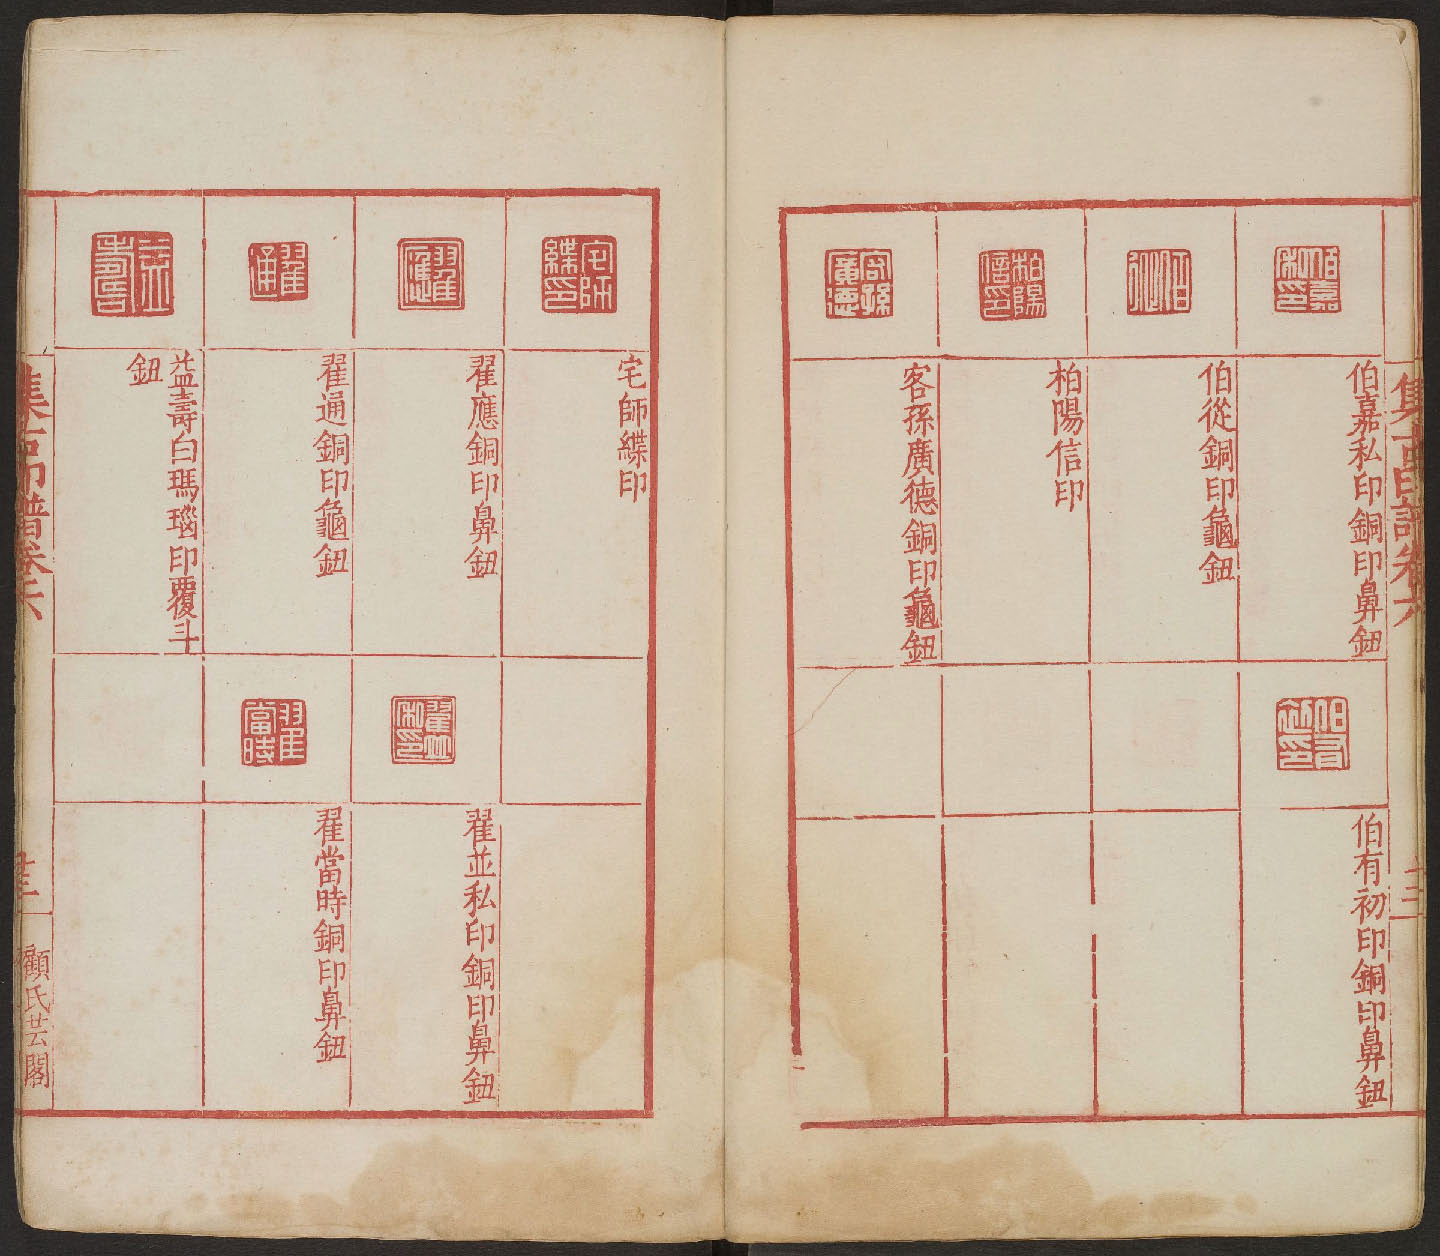 集古印譜卷六
伯嘉私印銅印鼻鈕
伯從銅印龜鈕
柏陽信印
客孫廣德銅印龜鈕
伯有初印銅印鼻鈕
宅師緤印
翟應銅印鼻鈕
翟通銅印龜鈕
益壽白瑪瑙印覆斗
鈕
翟並私印銅印鼻鈕
翟當時銅印鼻鈕
集古印譜卷六
顧氏芸閣